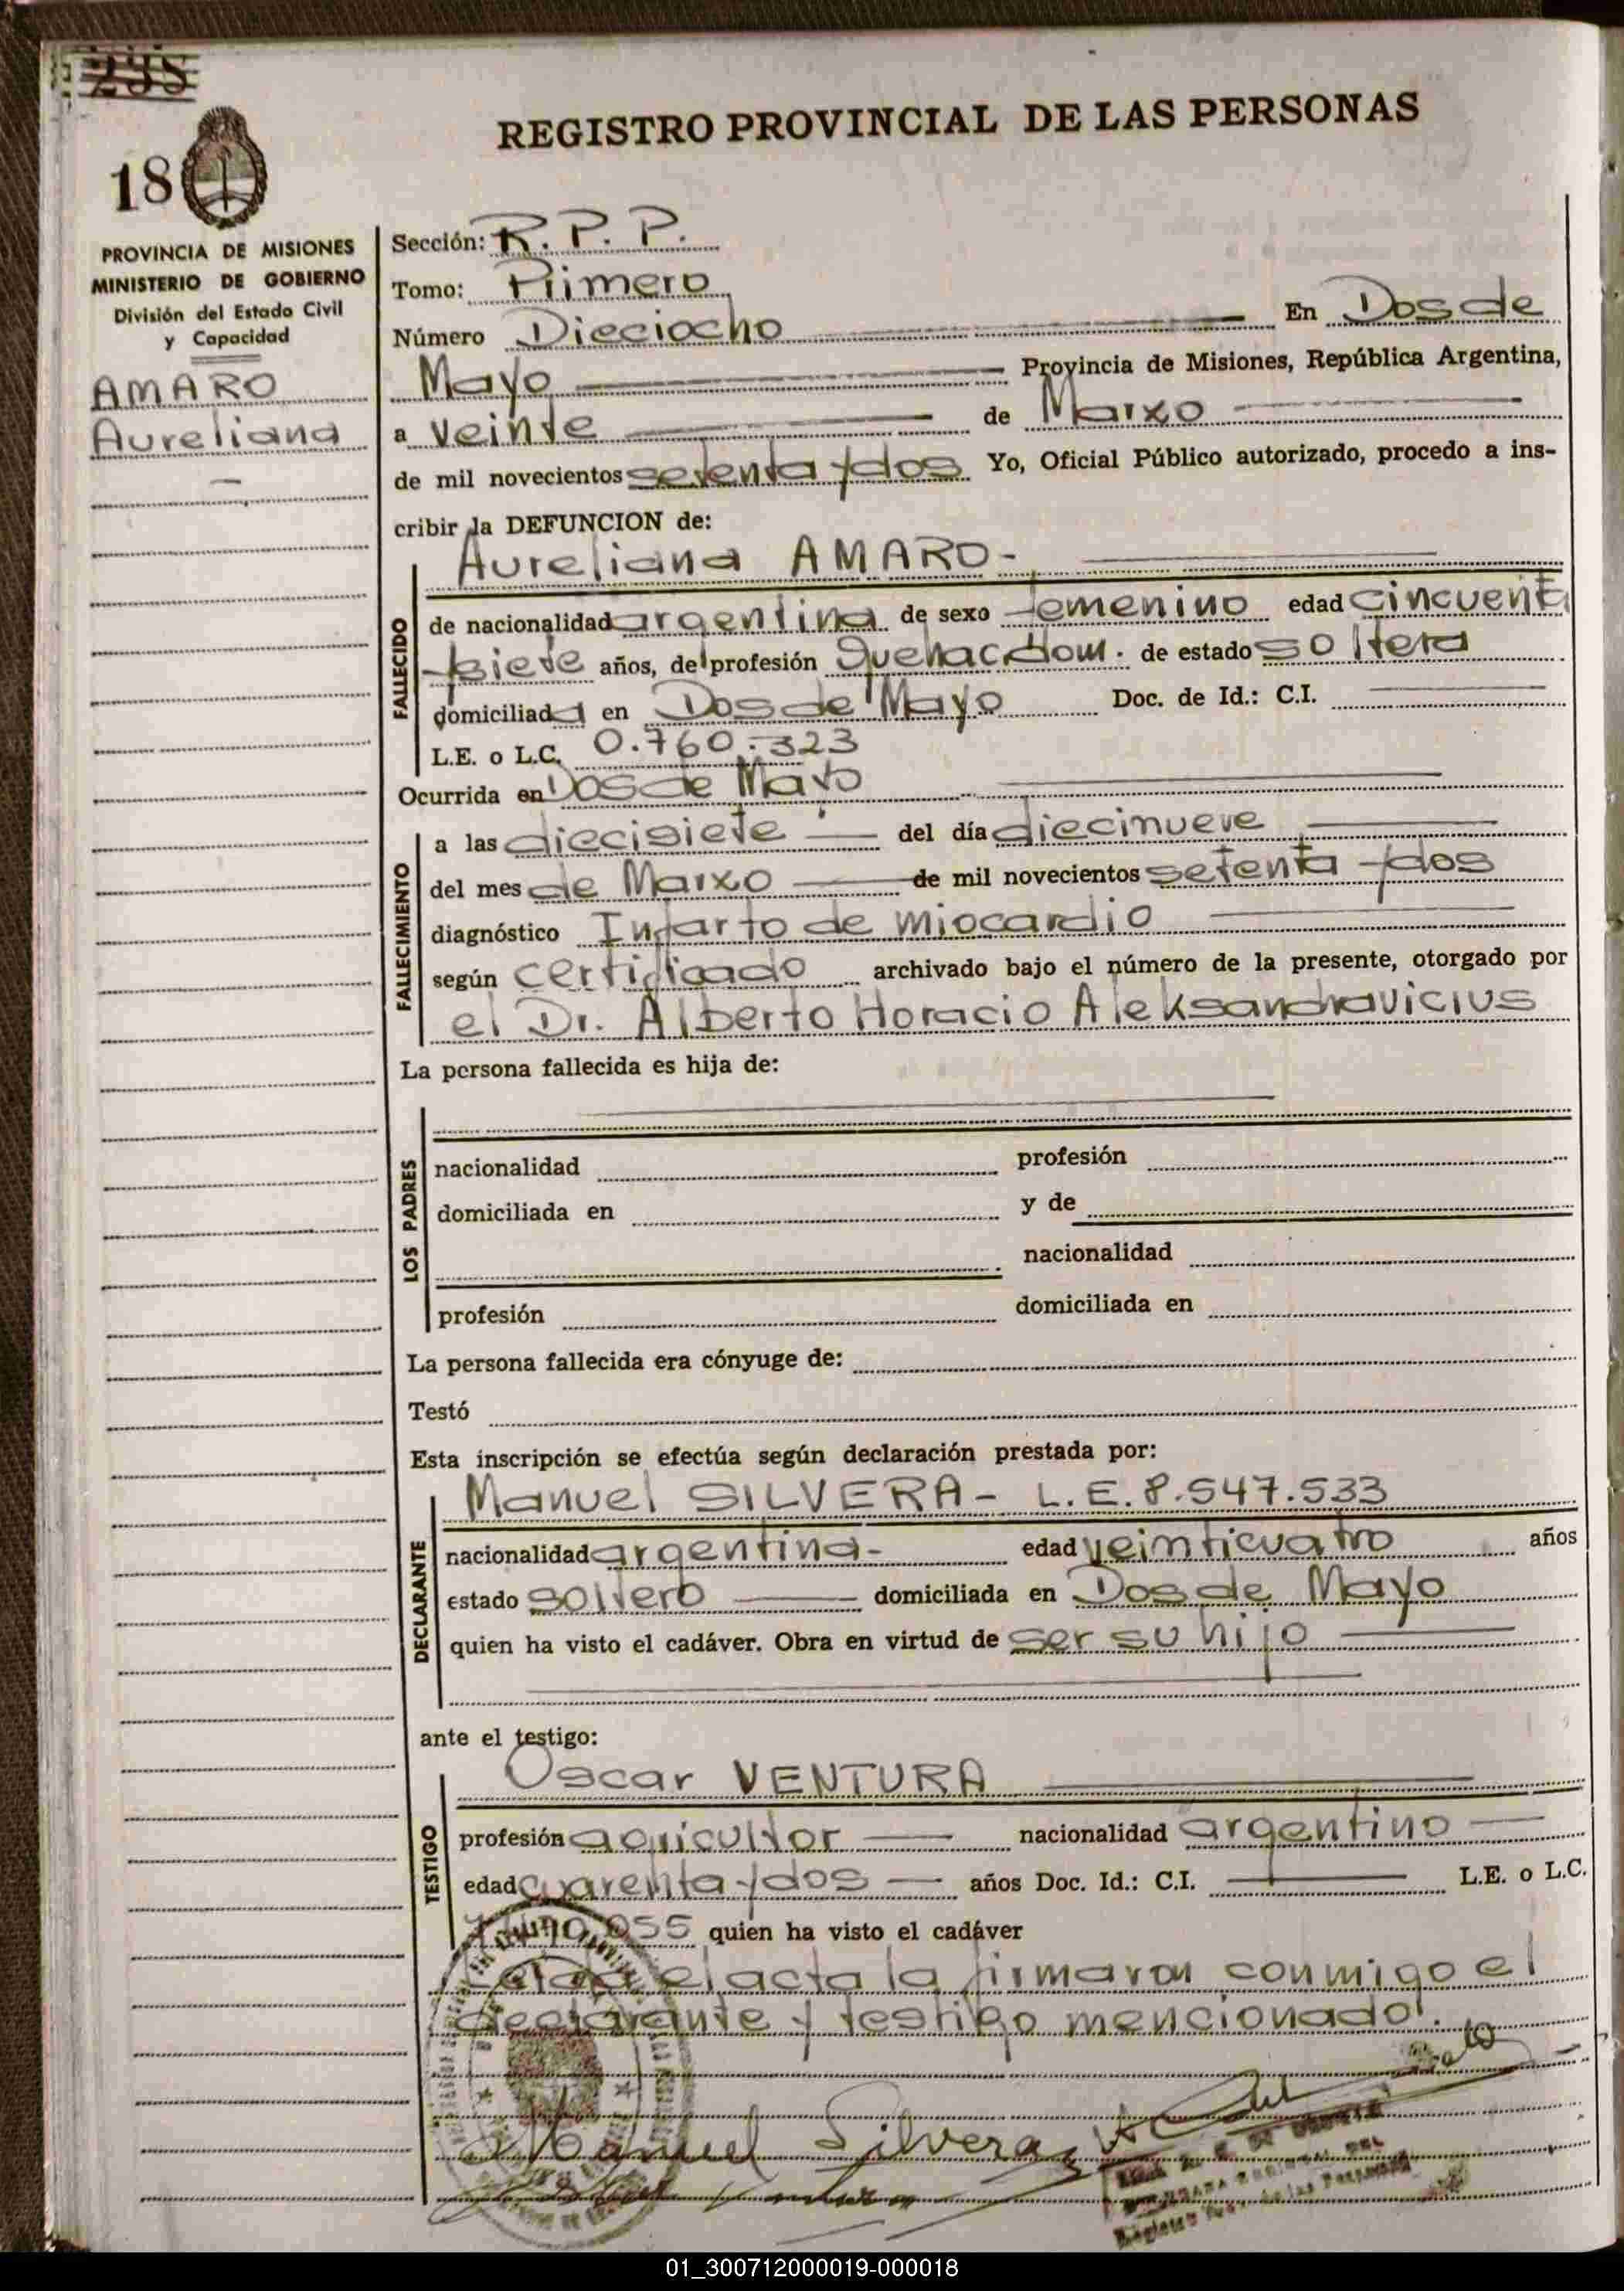 238
18
REGISTRO PROVINCIAL DE LAS PERSONAS
PROVINCIA DE MISIONES
MINISTERIO DE GOBIERNO
División del Estado Civil
y Capacidad
AMARO
Aureliana
Sección: R. P. P.
Tomo: Primero
Número Dieciocho En Dos de
Mayo Provincia de Misiones, República Argentina,
a veinte de Marzo
de mil novecientos setenta y dos Yo, Oficial Público autorizado, procedo a ins-
cribir la DEFUNCION de:
Aureliana AMARO-
FALLECIDO
de nacionalidad argentina de sexo femenino edad cincuenta
y siete años, de profesión quehac. dom. de estado soltera
domiciliada en Dos de Mayo Doc. de Id.: C.I.
L.E. o L.C. 0.760.323
Ocurrida en Dos de Mayo
FALLECIMIENTO
a las diecisiete del día diecinueve
del mes de Marzo de mil novecientos setenta y dos
diagnóstico Infarto de miocardio
según certificado archivado bajo el número de la presente, otorgado por
el Dr. Alberto Horacio Aleksandravicius
La persona fallecida es hija de:
LOS PADRES
nacionalidad profesión
domiciliada en y de
nacionalidad
profesión domiciliada en
La persona fallecida era cónyuge de:
Testó
Esta inscripción se efectúa según declaración prestada por:
Manuel SILVERA- L.E. 8.547.533
DECLARANTE
nacionalidad argentina- edad veinticuatro años
estado soltero domiciliada en Dos de Mayo
quien ha visto el cadáver. Obra en virtud de ser su hijo
ante el testigo:
Oscar VENTURA
TESTIGO
profesión agricultor nacionalidad argentino
edad cuarenta y dos años Doc. Id.: C.I. L.E. o L.C.
055 quien ha visto el cadáver
Leida el acta la firmaron conmigo el
declarante y testigo mencionado.
Manuel Silvera
01_300712000019-000018